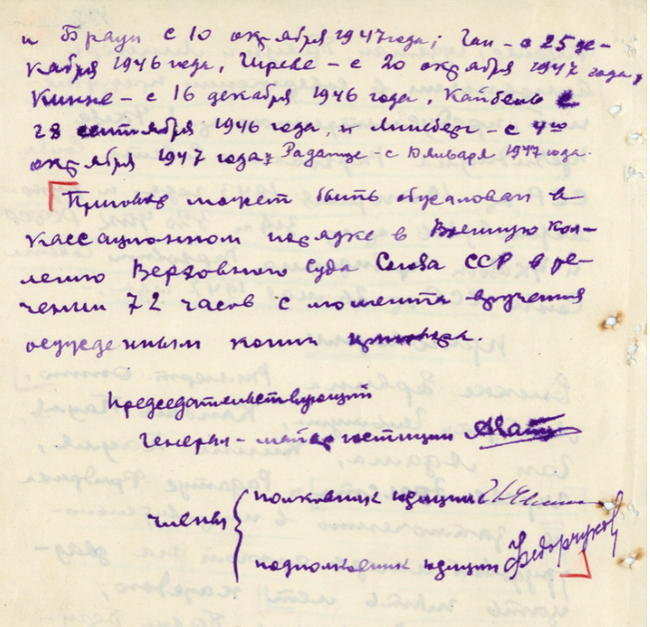 и Браун с 10 октября 1947 года; Ган - с 25 де-
кабря 1946 года, Ширве - с 20 октября 1947 года,
Кинне - 16 декабря 1946 года, Кайбель с
28 сентября 1946 года, и - с 4го
октября 1947 года, Радатус - с 10 января 1947 года.
Приговор может быть обжалован в
кассационном порядке в Военную Кол-
легию Верховного Суда Союза ССР в те-
чении 72 часов с момента вручения
осужденным копии приговора.
Председательствующий
Генерал-майор юстиции
Члены
полковник юстиции
подполковник юстиции Федорчуков